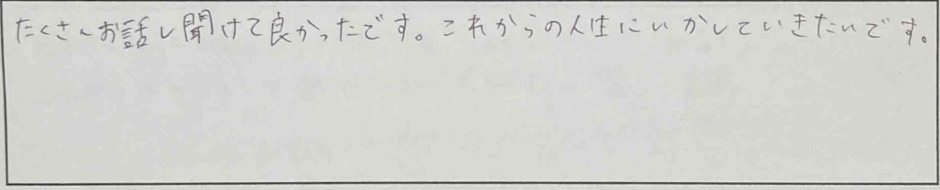 たくさんお話し聞けて良かったです。これからの人生にいかしていきたいです。